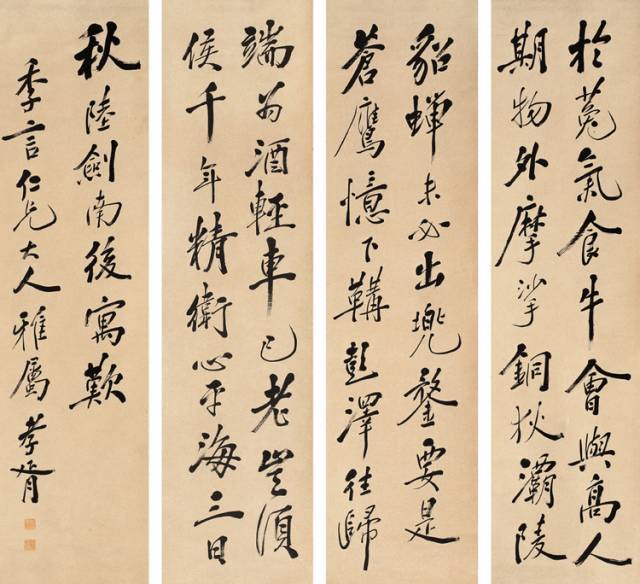 於菟氣食牛會與高人
期物外摩挲銅狄灞陵
貂蟬未必出兜鍪要是
蒼鷹憶下韝彭澤徑歸
端為酒輕車已老豈須
侯千年精衛心平海三日
秋陸劍南後寓歎
季言仁兄大人雅屬 孝胥